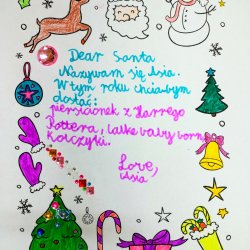 Dear Santa
Nazywam się Asia.
W tym roku chciałbym
dostać:
pierścionek z Harrego
Pottera, lalke baby born
Kolczyki.
Love,
Asia